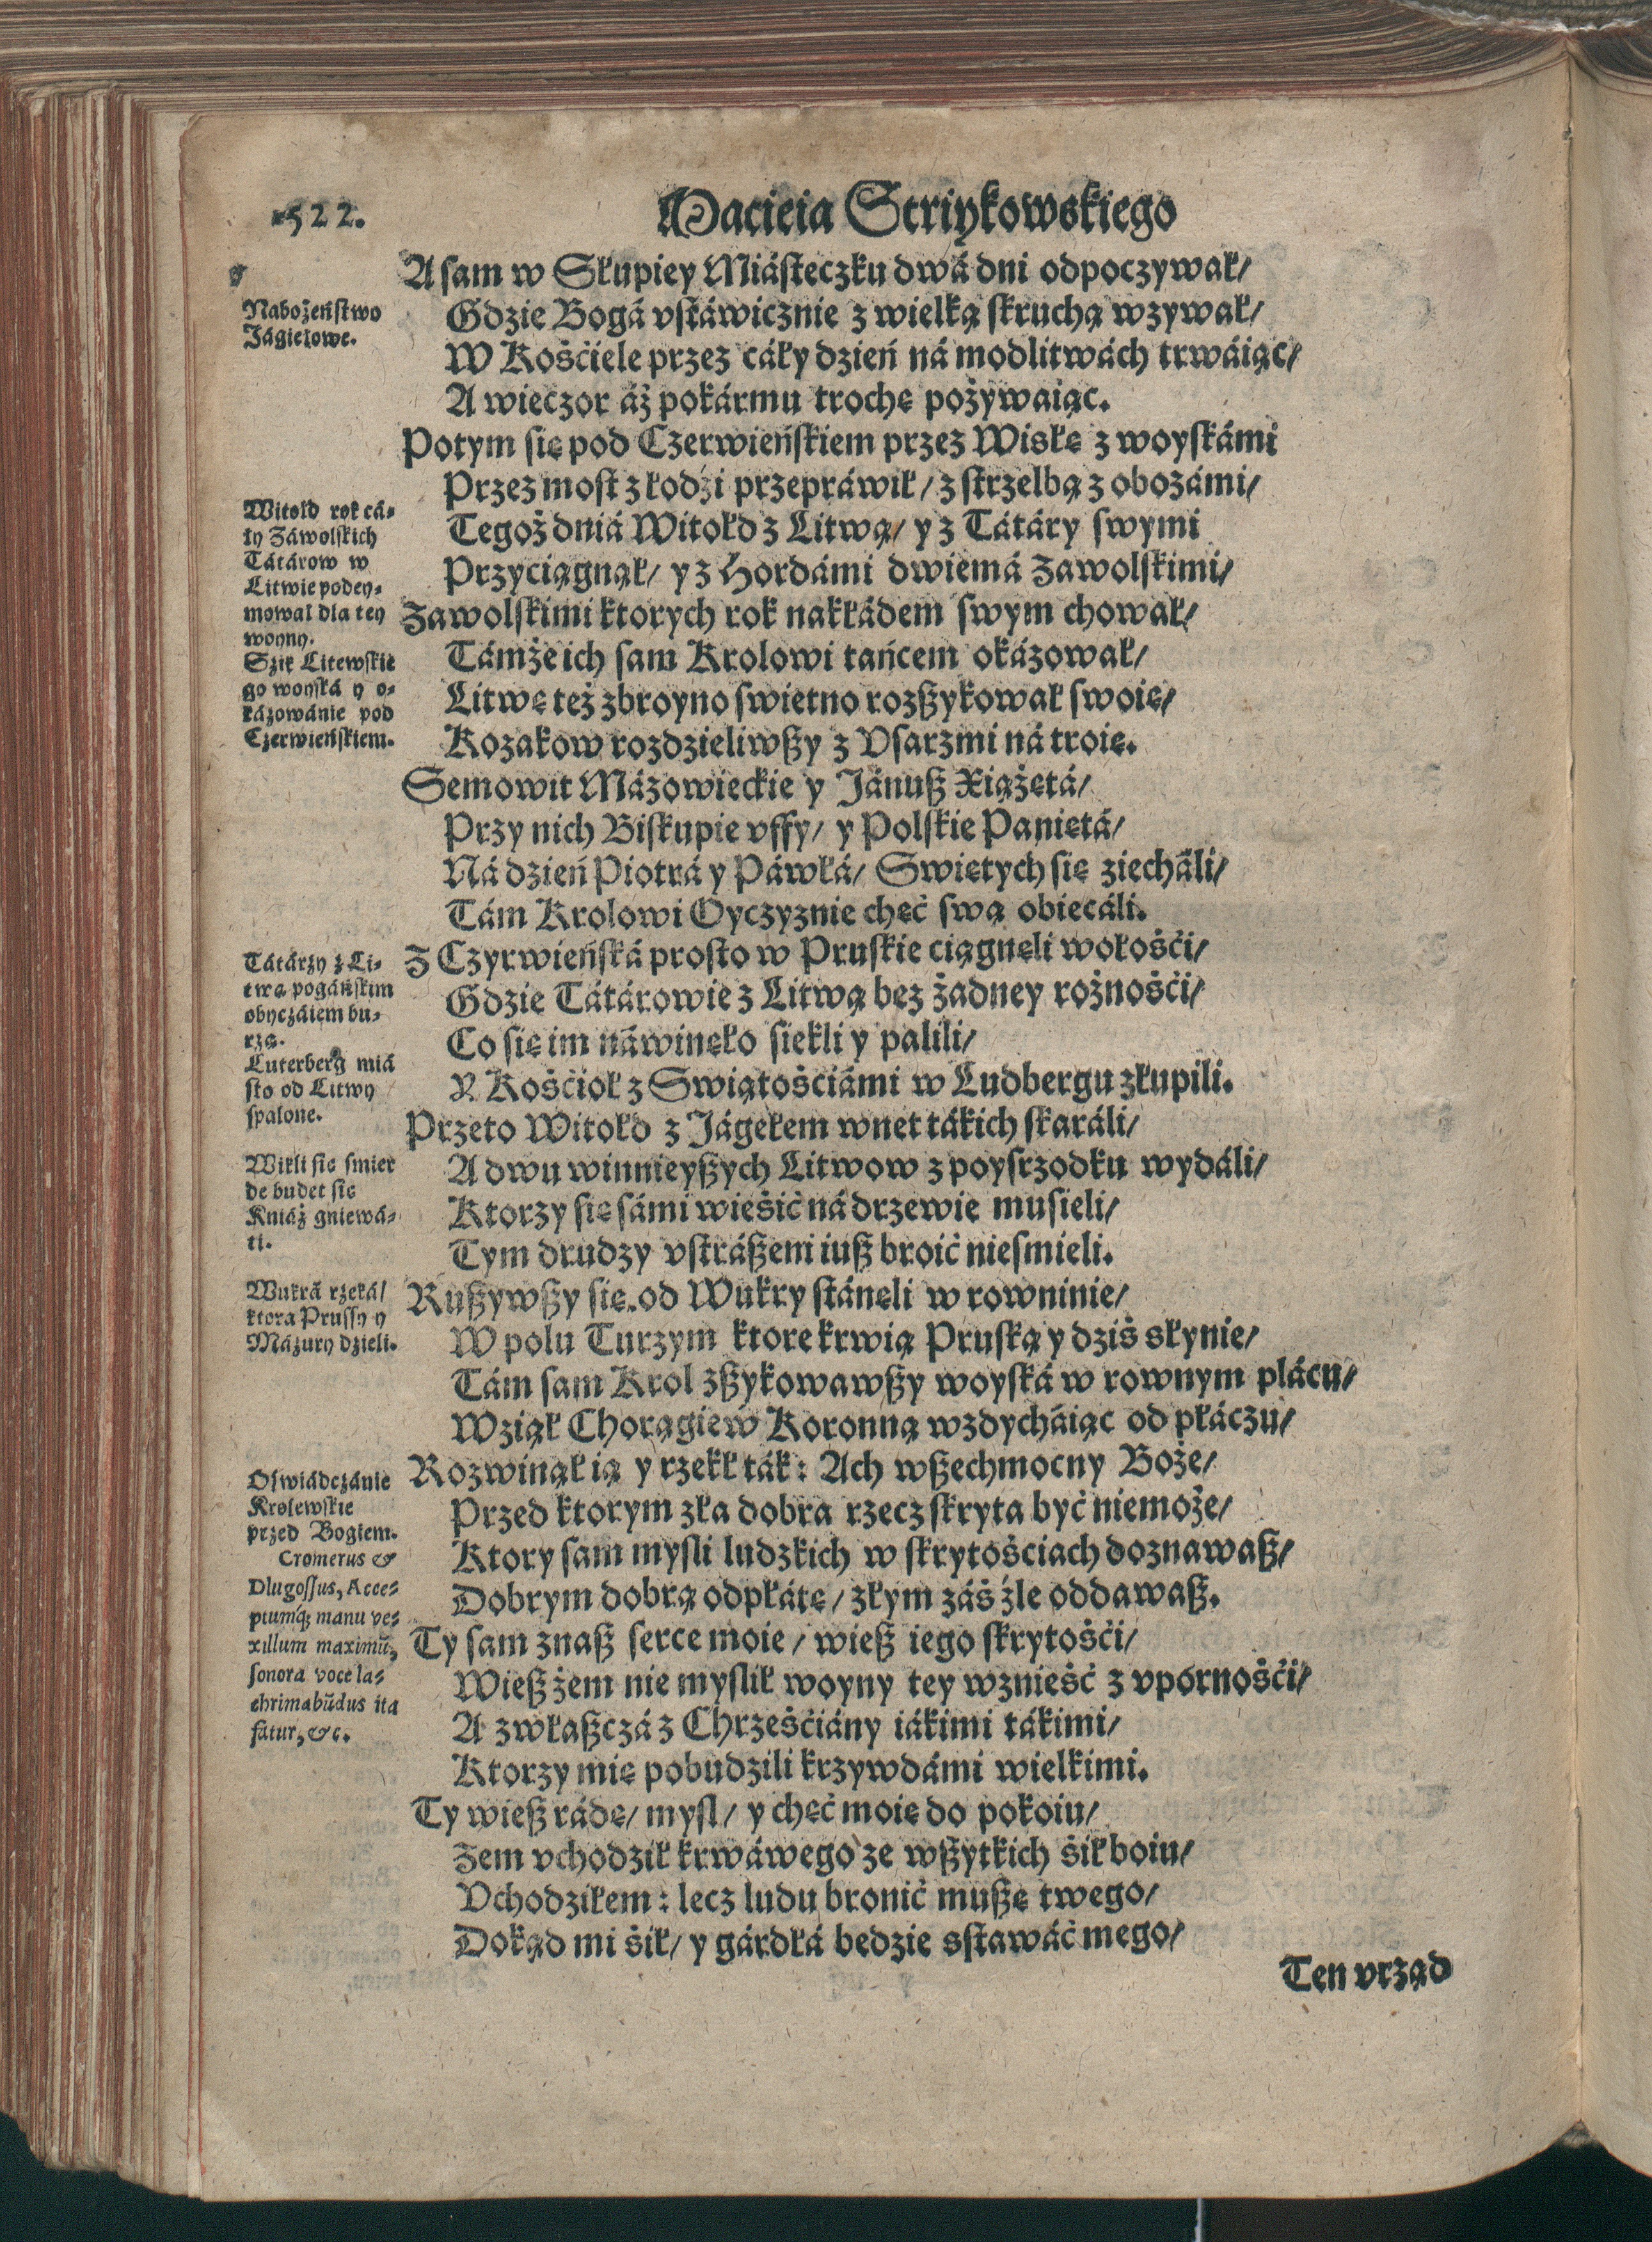 522.
Macieia Striykowskiego
A sam w Słupiey Miásteczku dwá dni odpoczywał/
Gdzie Bogá vstáwicznie z wielką skruchą wzywał/
W Kośćiele przez cáły dzień ná modlitwách trwáiąc/
A wieczor áż pokármu trochę pożywaiąc.
Potym się pod Czerwieńskiem przez Wisłę z woyskámi
Przez most z łodźi przepráwił/ z strzelbą z obozámi/
Tegoż dniá Witołd z Litwą/ y z Tátáry swymi
Przyciągnął/ y z Hordámi dwiemá Zawolskimi/
Zawolskimi ktorych rok nakłádem swym chował/
Támże ich sam Krolowi tańcem okázował/
Litwę też zbroyno swietno rozßykował swoię/
Kozakow rozdzieliwßy z Vsarzmi ná troię.
Semowit Mázowieckie y Jánuß Xiążętá/
Przy nich Biskupie vffy/ y Polskie Paniętá/
Ná dzień Piotrá y Páwłá/ Swiętych się ziecháli/
Tám Krolowi Oyczyznie chęć swą obiecáli.
Z Czyrwieńská prosto w Pruskie ciągnęli wołośći/
Gdzie Tátárowie z Litwą bez żadney rożnośći/
Co się im náwinęło siekli y palili/
Y Kośćioł z Swiątośćiámi w Ludbergu złupili.
Przeto Witołd z Jágełem wnet tákich skaráli/
A dwu winnieyßych Litwow z poysrzodku wydáli/
Ktorzy się sámi wieśić ná drzewie musieli/
Tym drudzy vstráßeni iuß broić niesmieli.
Rußywßy się od Wukry stánęli w rowninie/
W polu Turzym ktore krwią Pruską y dziś słynie/
Tám sam Krol zßykowawßy woyská w rownym plácu/
Wziął Chorągiew Koronną wzdycháiąc od płáczu/
Rozwinął ią y rzekł ták: Ach wßechmocny Boże/
Przed ktorym zła dobra rzecz skryta być niemoże/
Ktory sam mysli ludzkich w skrytośćiach doznawaß/
Dobrym dobrą odpłátę/ złym záś źle oddawaß.
Ty sam znaß serce moie/ wieß iego skrytośći/
Wieß żem nie myslił woyny tey wznieść z vpornośći/
A zwłaßczá z Chrześćiány iákimi tákimi/
Ktorzy mię pobudzili krzywdámi wielkimi.
Ty wieß rádę/ mysl/ y chęć moię do pokoiu/
Zem vchodził krwáwego ze wßytkich śił boiu/
Vchodziłem: lecz ludu bronić mußę twego/
Dokąd mi śił/ y gárdłá bedzie sstawáć mego/
Ten vrząd
Nabożeństwo
Jágiełowe.
Witold rok cá-
ły Záwolskich
Tátárow w
Litwie podey-
mował dla tey
woyny.
Szik Litewskie
go woyská y o-
kázowánie pod
Czerwieńskiem.
Tátárzy z Li-
twą pogáńskim
obyczáiem bu-
rzą.
Luterberg miá
sto od Litwy
spalone.
Wikli się smier
de budet sie
Kniáź gniewá-
ti.
Wukrá rzeká/
ktora Prussy y
Mázury dzieli.
Oświádczánie
Krolewskie
przed Bogiem.
Cromerus &
Dlugossus, Acce-
ptumq́; manu ve-
xillum maximũ,
sonora voce la-
chrimabũdus ita
fatur, &c.